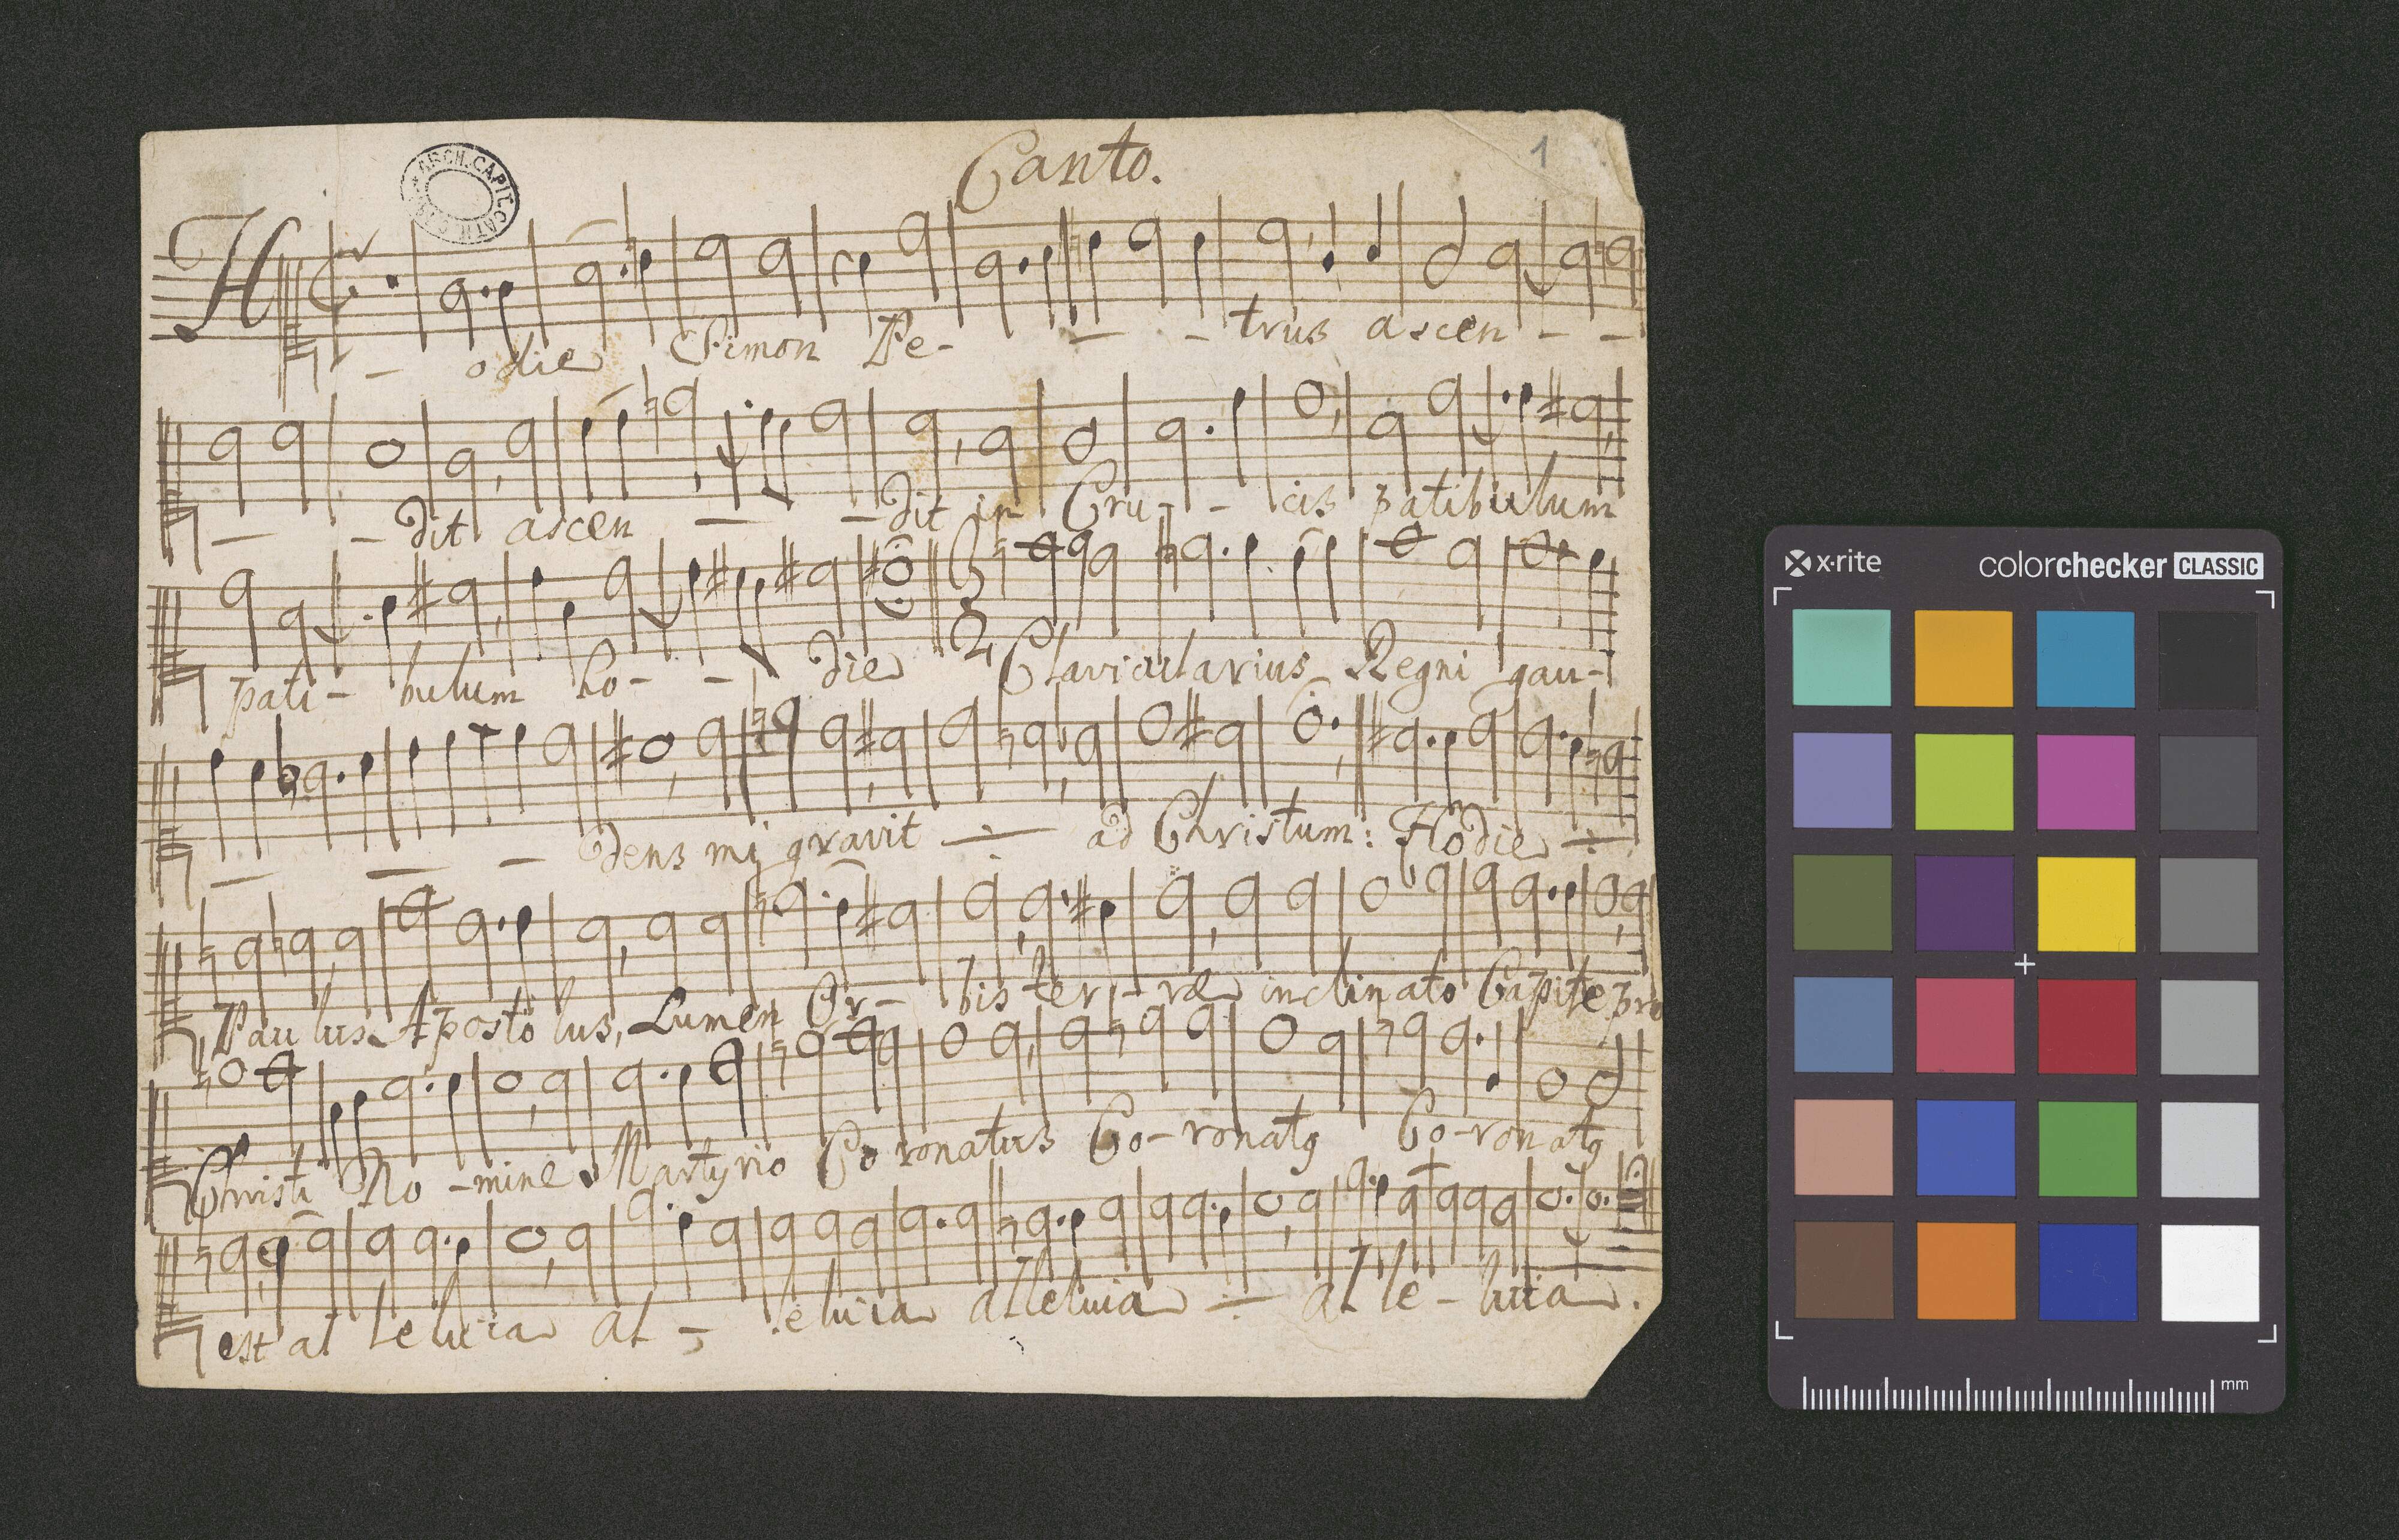 Canto.
1
ARCH. CAPIT. CATH.
H - odie Simon Pe- - - trus ascen - -
- - dit ascen - - dit in Cru - - cis patibulum
pati - bulum ho - - die 3 2 Clavicularius Regni gau-
- - - dens migravit ÷ ad Christum: Hodie ÷
Paulus Apostolus, Lumen Or- bis ter - ræ inclinato Capite pro
Christi No - mine Martyrio Coronatus Co - ronatꝯ Co - ronatꝯ
est al leluia al - leluia alleluia ÷ al le - luia.
x·rite
colorchecker CLASSIC
mm